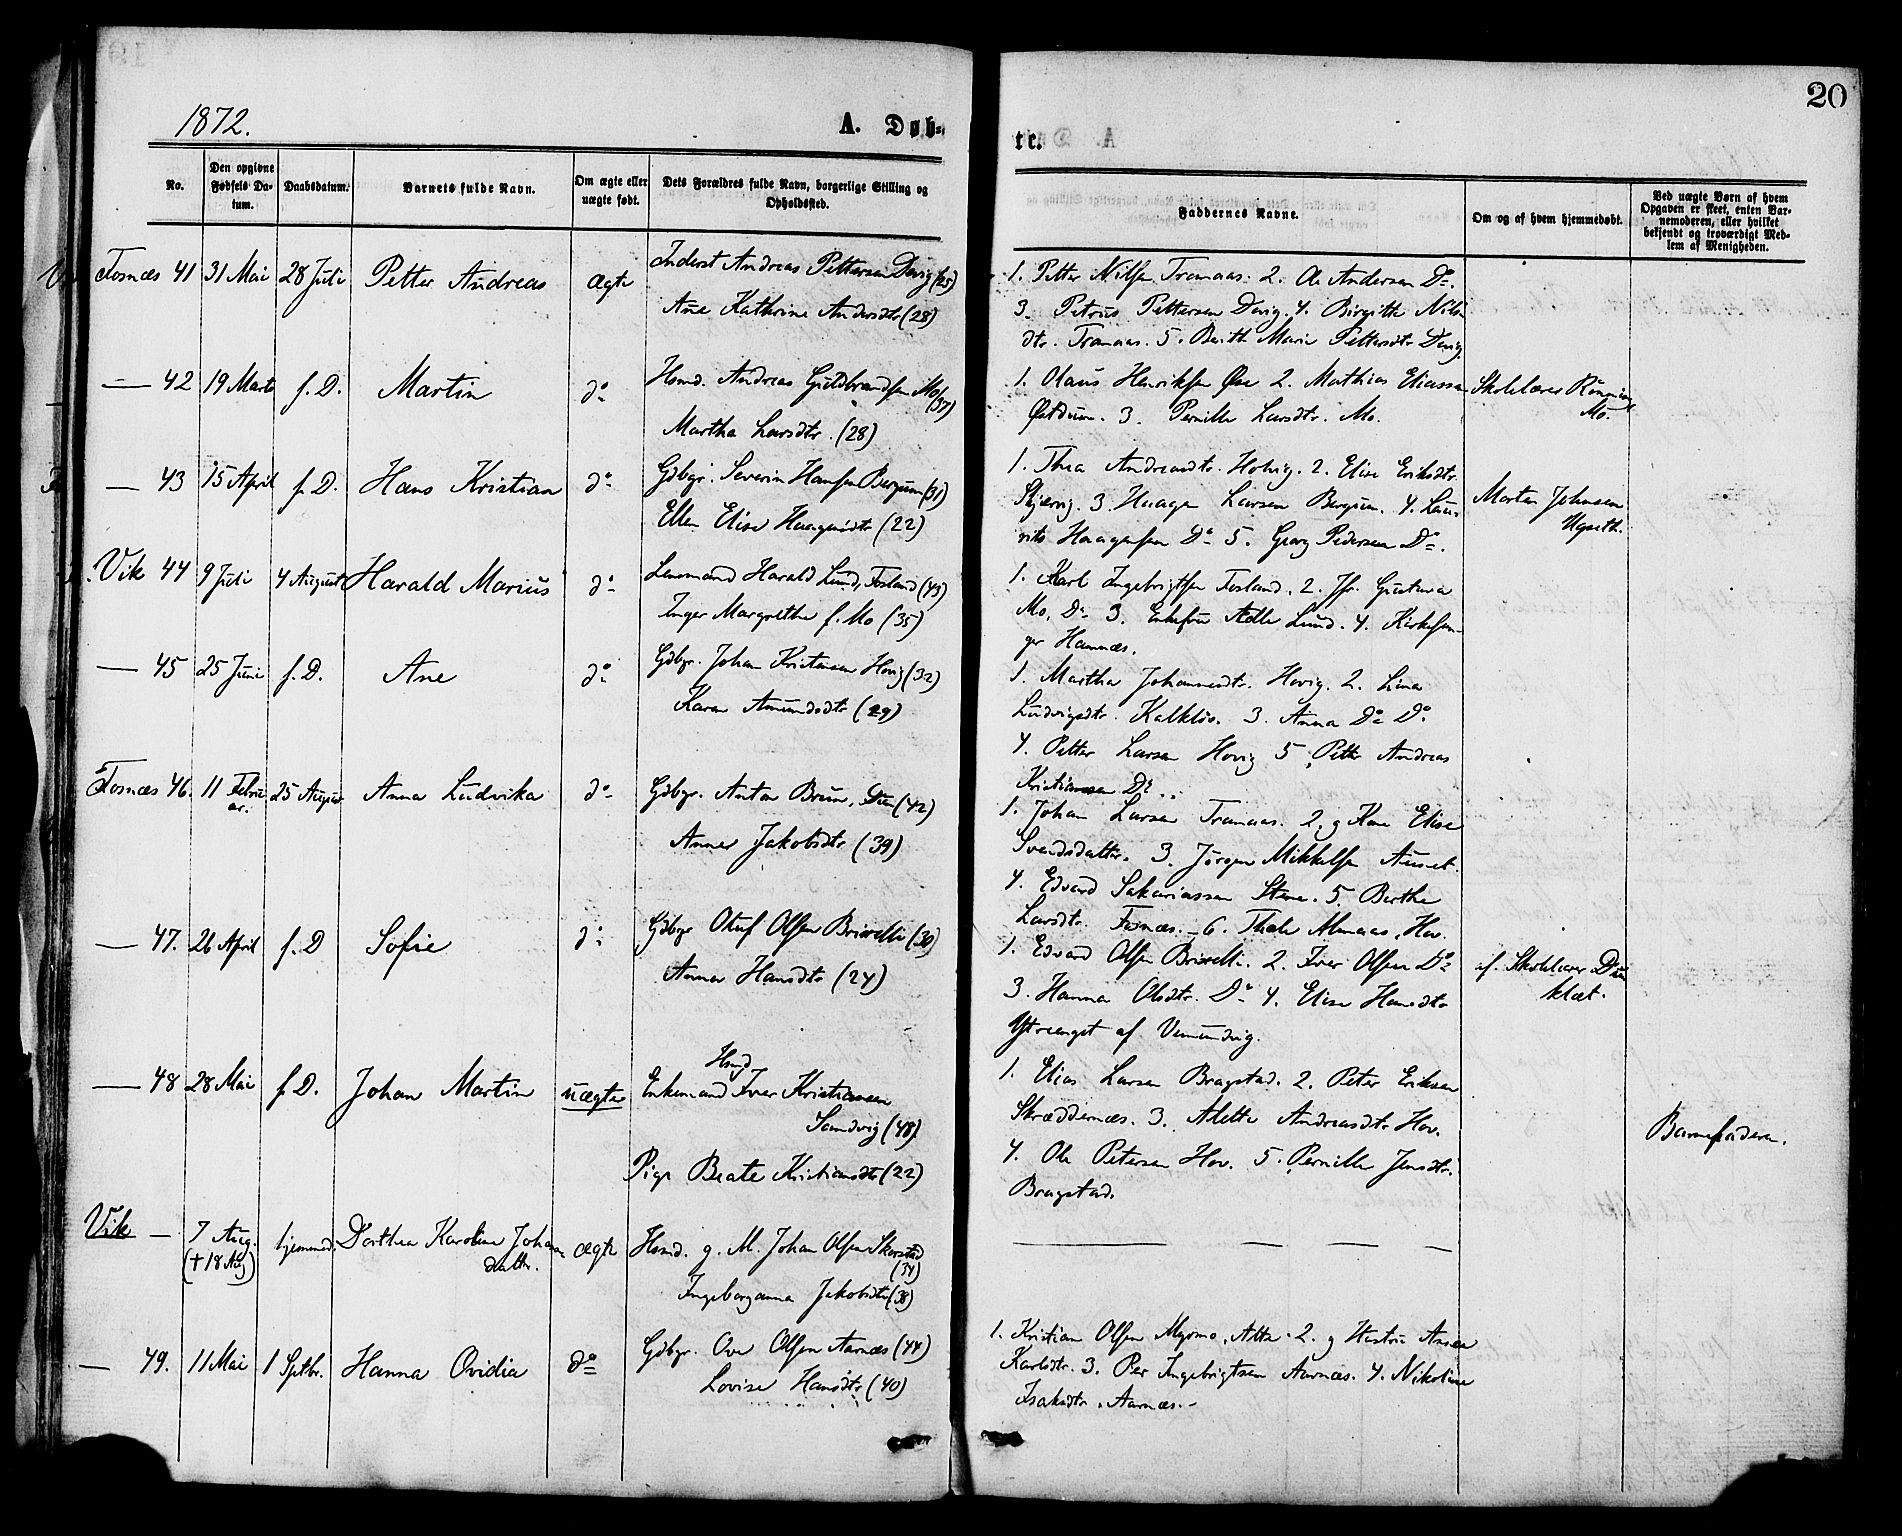 20
1872.
A. Døb-
te.
No.
Den opgivne Fødsels Da-tum.
Daabsdatum.
Barnets fulde Navn.
Om ægte eller uægte født.
Dets Forældres fulde Navn, borgerlige Stilling og Opholdssted.
Faddernes Navne.
Om og af hvem hjemmedøbt.
Ved uægte Børn af hvem Opgaven er skeet, enten Bar-nemoderen, eller hvilket bekjendt og troværdigt Med-lem af Menigheden.
Fosnæs 41 31 Mai 28 Juli Petter Andreas ægte Inderst Andreas Pettersen Devig (25)
Ane Kathrine Andersdtr (28)
1. Petter Nilsen Tranaas. 2. Ole Andersen Do.
3. Petrus Pettersen Devig. 4. Birgitte Nils
dtr. Tranaas. 5. Berith Marie Pettersdtr Devig
— 42 19 Marts s. D. Martin do Hsmd. Andreas Guldbrandsen Mo (37)
Martha Larsdtr. (28)
1. Olaus Henriksen Øse 2. Mathias Eliassen
3. Pernille Larsdtr. Mo.
Skolelærer Rønning
Mo.
— 43 15 April s. D. Hans Kristian do Gdbgr. Severin Hansen Bergum (31)
Ellen Elise Haagensdtr (22)
1. Thea Andreasdtr. Hovig. 2. Elise Eriksdtr.
Skjærvig. 3. Haagen Larsen Bergum. 4. Lau-
rits Haagensen Do 5. Georg Pedersen Do.
Morten Johnsen
Ugseth.
Vik 44 9 Juli 4 August Harald Marius do Lensmand Harald Lund, Fosland (43)
Inger Margrethe f. Mo (35)
1. Karl Ingebrigtsen Fosland. 2. Jfr. Gustava
Mo, Do 3. Enkefru Adle Lund. 4. Kirkesan-
ger Hamnæs.
— 45 25 Juni s. D. Ane do Gdbgr. Johan Kristensen Hovig (32)
Karen Amundsdtr (29)
1. Martha Johannesdtr. Hovig. 2. Lina
Ludvigsdtr. Kalkløv. 3. Anna Do Do.
4. Petter Larsen Hovig 5. Petter Andreas
Kristiansen Do.
Fosnæs 46. 11 Febru
ar. 25 August Anna Ludvika do Gdbgr. Anton Brun, Dun (42)
Anner Jakobsdtr (39)
1. Johan Larsen Tranaas. 2. g Kone Elise
Svendsdatter. 3. Jörgen Mikkelsen Aunet.
4. Edvard Sakariassen Stene. 5. Berthe
Larsdtr. Fosnæs. — 6. Thale Almaas, Hov.
— 47. 26 April s. D Sofie do Gdbgr Oluf Olsen Brisvelli (30)
Anna Hansdtr (24)
1. Edvard Olsen Brisvelli. 2. Iver Olsen Do
3. Hanna Olsdtr. Do 4. Elise Hansdtr
Ytrenget af Vemundvig.
af. Skolelærer Dun
klæt.
— 48 28 Mai s. D. Johan Martin uægte Hsmd
Enkemand Iver Kristiansen
Sandvig (48).
Pige Beate Kristiansdtr (22)
1. Elias Larsen Bragstad. 2. Peter Eriksen
Skræddernæs. 3. Alette Andreasdtr Hov.
4. Ole Petersen Hov. 5. Pernille Jensdtr.
Bragstad.
Barnefaderen.
Vik — 7 Aug.
(+ 18 Aug) hjemmed. Dorthea Karoline Johan
datter. ægte Hsmd. g. M. Johan Olsen Skorstad
(34)
Ingeborganna Jakobsdtr (38)
— 49. 11 Mai 1 Septbr. Hanna Ovidia do Gdbgr. Ove Olsen Aarnæs (44)
Lovise Hansdtr (40)
1. Kristian Olsen Myrmo, Alte. 2. g Hustru Anna
Karlsdtr. 3. Per Ingebrigtsen Aarnæs. 4. Nikoline
Isaksdtr. Aarnæs. -